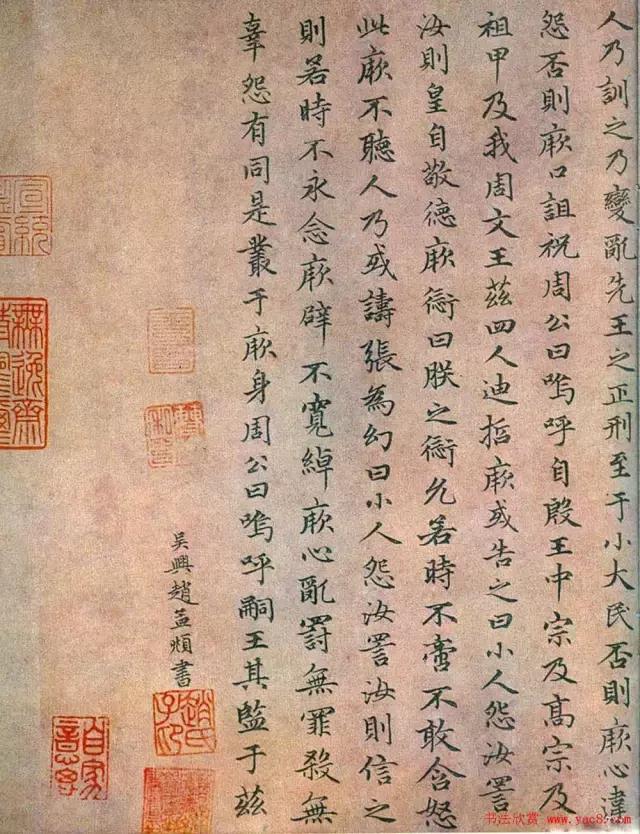 人乃訓之乃變亂先王之正刑至于小大民否則厥心違
怨否則厥口詛祝周公曰嗚呼自殷王中宗及高宗及
祖甲及我周文王茲四人迪哲厥或告之曰小人怨汝詈
汝則皇自敬德厥愆曰朕之愆允若時不啻不敢含怒
此厥不聽人乃或譸張為幻曰小人怨汝詈汝則信之
則若時不永念厥辟不寬綽厥心亂罰無罪殺無
辜怨有同是叢于厥身周公曰嗚呼嗣王其監于茲
吳興趙孟頫書
趙氏子昂
無逸齋精鑒璽
书法欣赏
www.yac8.com